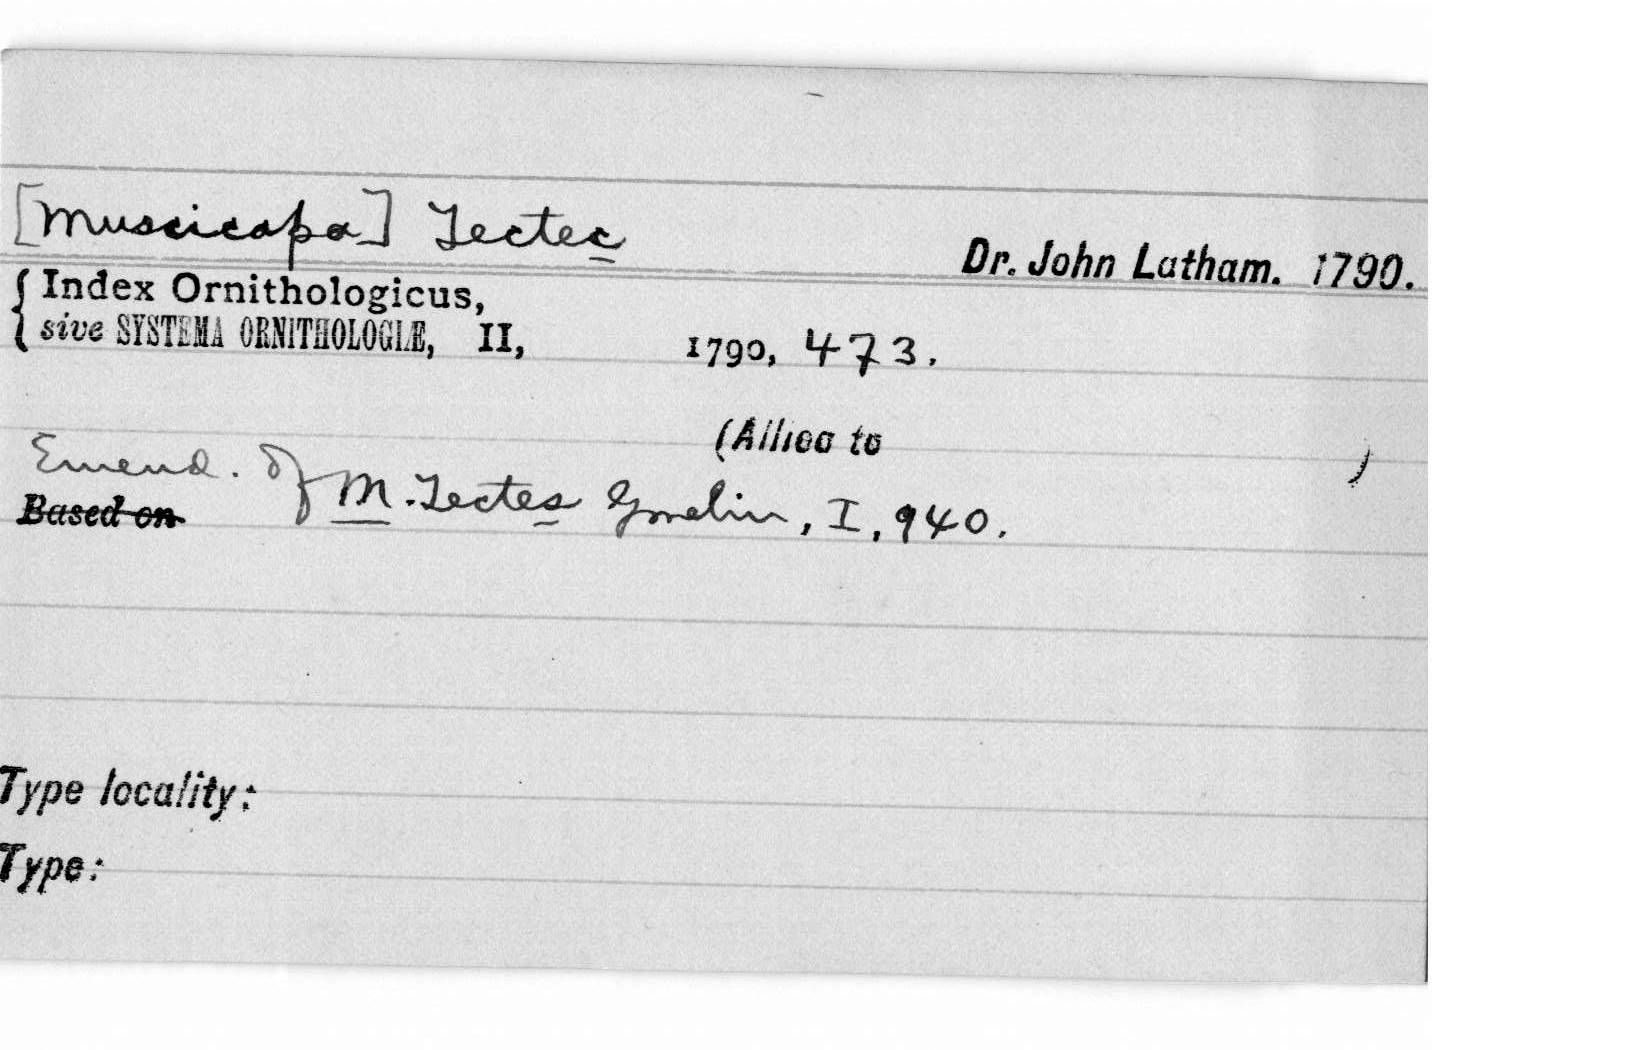 [Muscicapa] Tectec
Dr. John Latham. 1790.
Index Ornithologicus,
sive SYSTEMA ORNITHOLOGIÆ, II, 1790, 473.
(Allied to )
Emend. of M. Tectes Gmelin, I, 940.
Based on
Type locality:
Type: